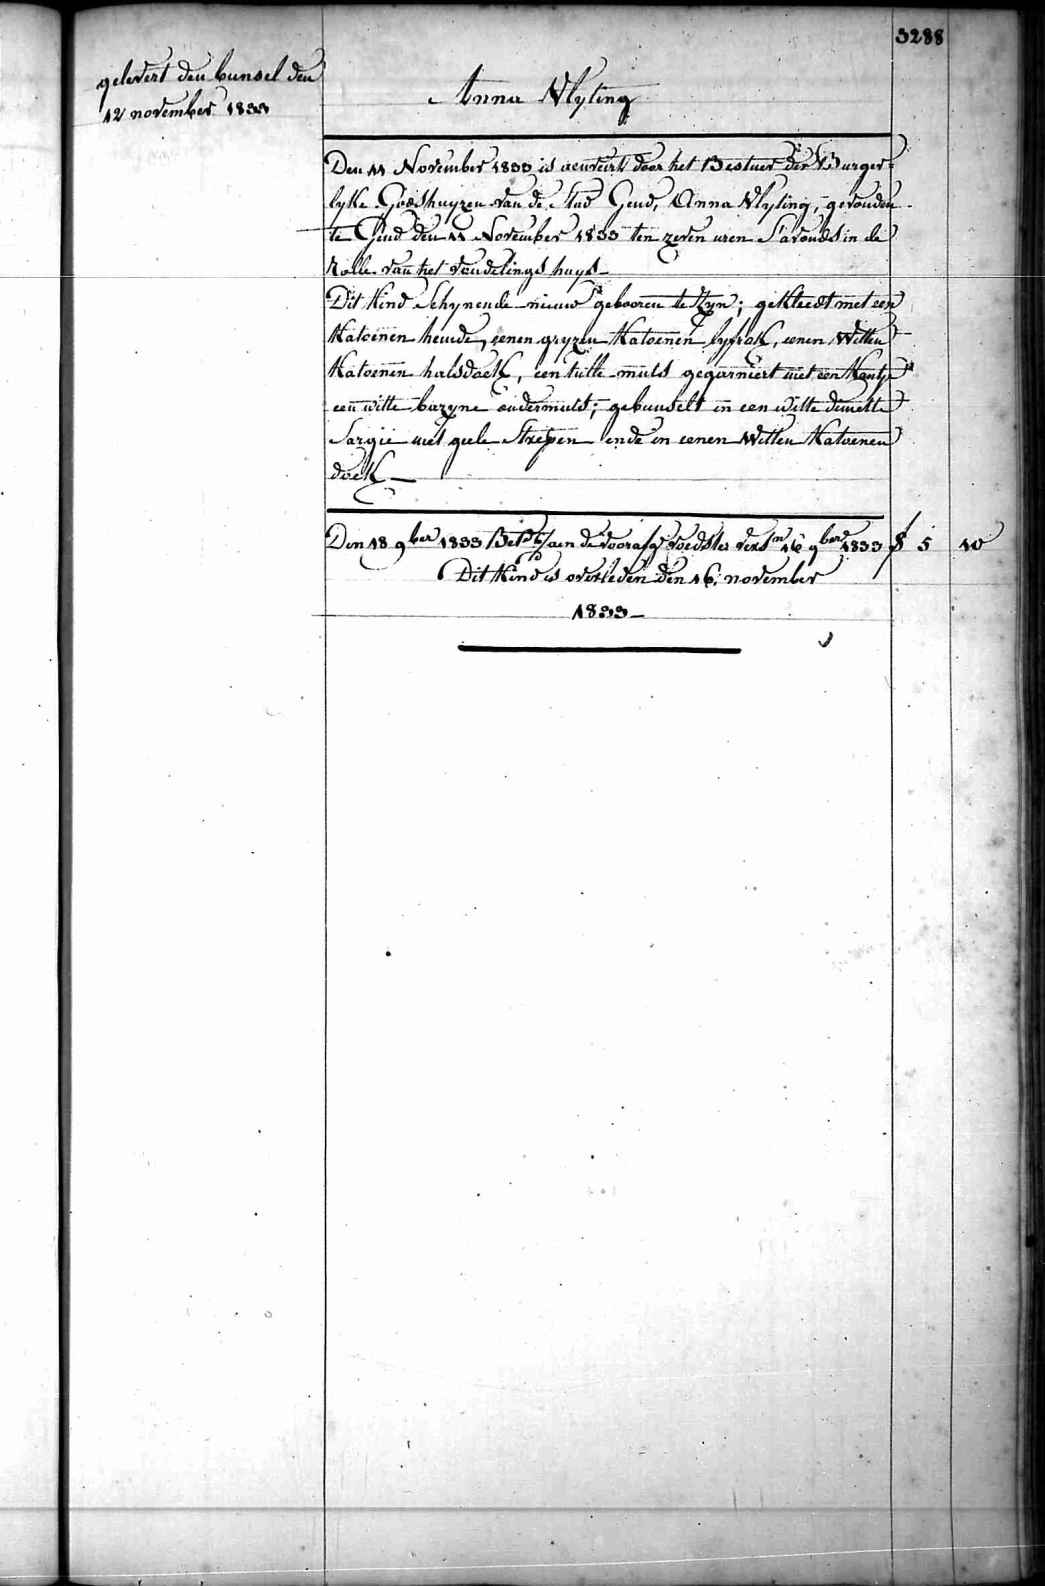 3288
gelevert den bunsel den
12 november 1833
Anna Vlyting
Den 11 November 1833 is aenveirt door het Bestuer der Burger-
lyke Godshuyzen van de Stad Gend, Anna Vlyting, gevonden
te Gend den 11 November 1833 ten zeven uren S'avonds in de
Rolle van het vondelings huys
Dit Kind Schynende nieuw gebooren te Zyn; gekleedt met een
Katoenen hemde, eenen gryzen Katoenen lyfrok, eenen Witten
Katoenen halsdoek, een tulle muts gegarniert met een Kantje
een witte bazyne ondermuts; gebunselt in een witte dimitte
Sargie met geele Strepen ende in eenen Witten Katoenen
doek
Den 18 9ber 1833 Bet. aen de voorafg voedster verst 16 9ber 1833 5 10
Dit Kind is overleden den 16 november
1833